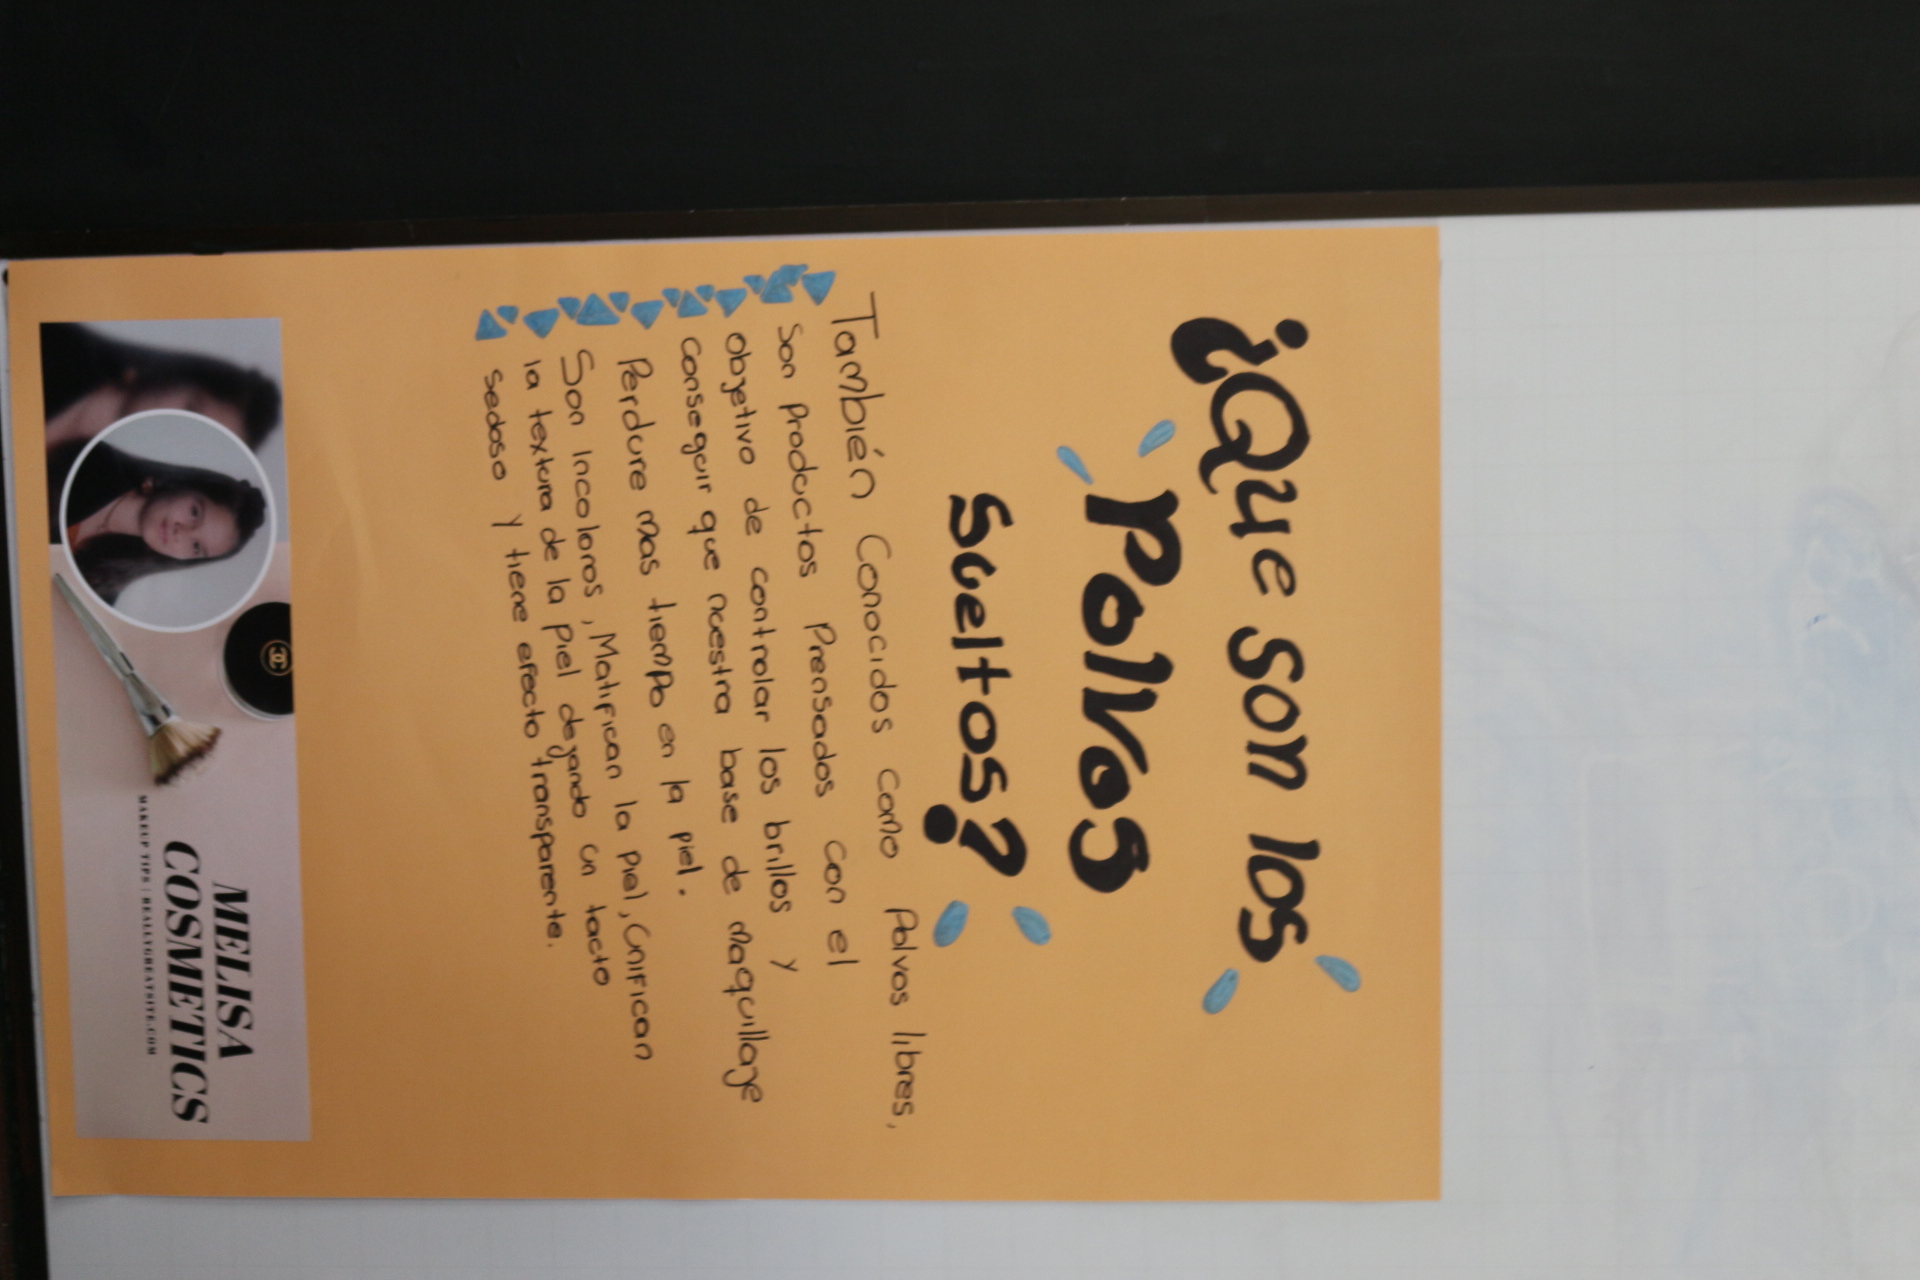 ¿Que son los
Polvos
Sueltos?
También Conocidos como Polvos libres,
Son Productos Prensados con el
objetivo de controlar los brillos y
conseguir que nuestra base de maquillaje
Perdure mas tiempo en la piel.
Son Incoloros, Matifican la piel, Unifican
la textura de la Piel dejando un tacto
sedoso y tiene efecto transparente.
MELISA
COSMETICS
MAKEUP TIPS | REALLYGREATSITE.COM